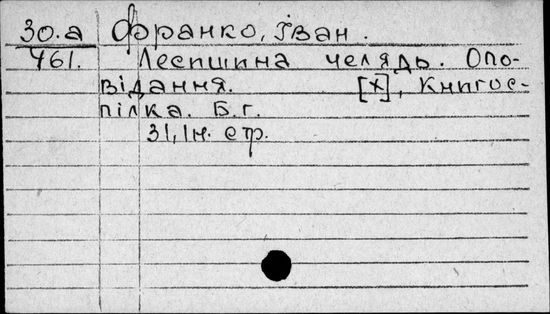 30.а Франко, Іван.
461. Лесишина челядь. Опо-
відання. [х], Книгос-
пілка. Б.г.
31, Ін. стр.